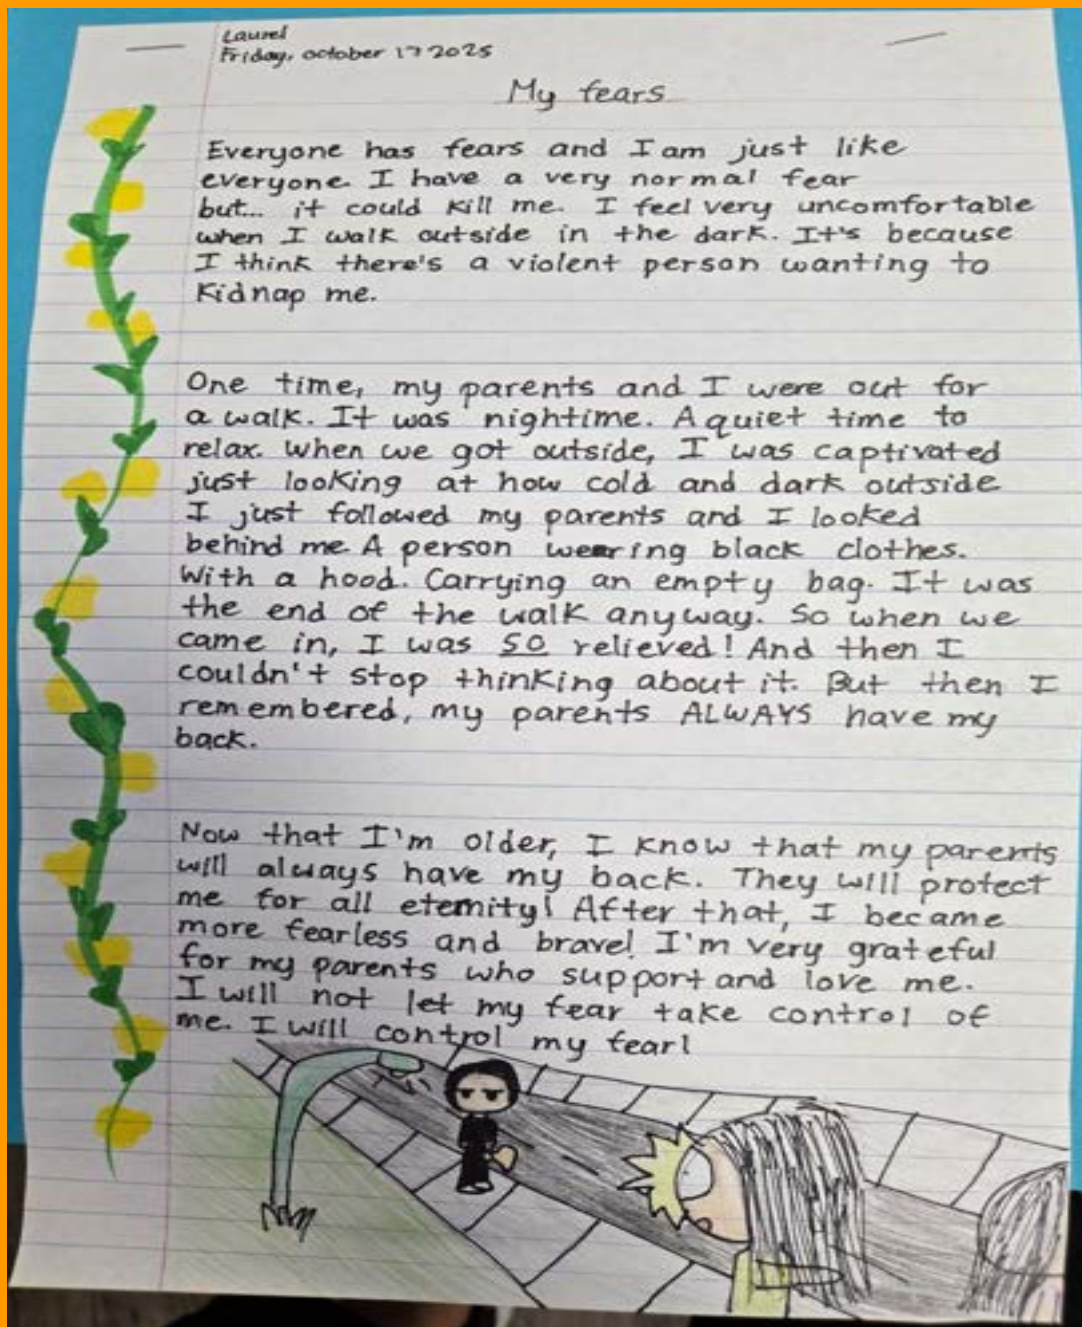 Laurel
Friday, october 17 2025
My fears
Everyone has fears and I am just like
everyone. I have a very normal fear
but... it could kill me. I feel very uncomfortable
when I walk outside in the dark. It's because
I think there's a violent person wanting to
kidnap me.
One time, my parents and I were out for
a walk. It was nightime. A quiet time to
relax. When we got outside, I was captivated
just looking at how cold and dark outside
I just followed my parents and I looked
behind me. A person wearing black clothes.
With a hood. Carrying an empty bag. It was
the end of the walk anyway. So when we
came in, I was SO relieved! And then I
couldn't stop thinking about it. But then I
remembered, my parents ALWAYS have my
back.
Now that I'm older, I know that my parents
will always have my back. They will protect
me for all eternity! After that, I became
more fearless and brave! I'm very grateful
for my parents who support and love me.
I will not let my fear take control of
me. I will control my fear!